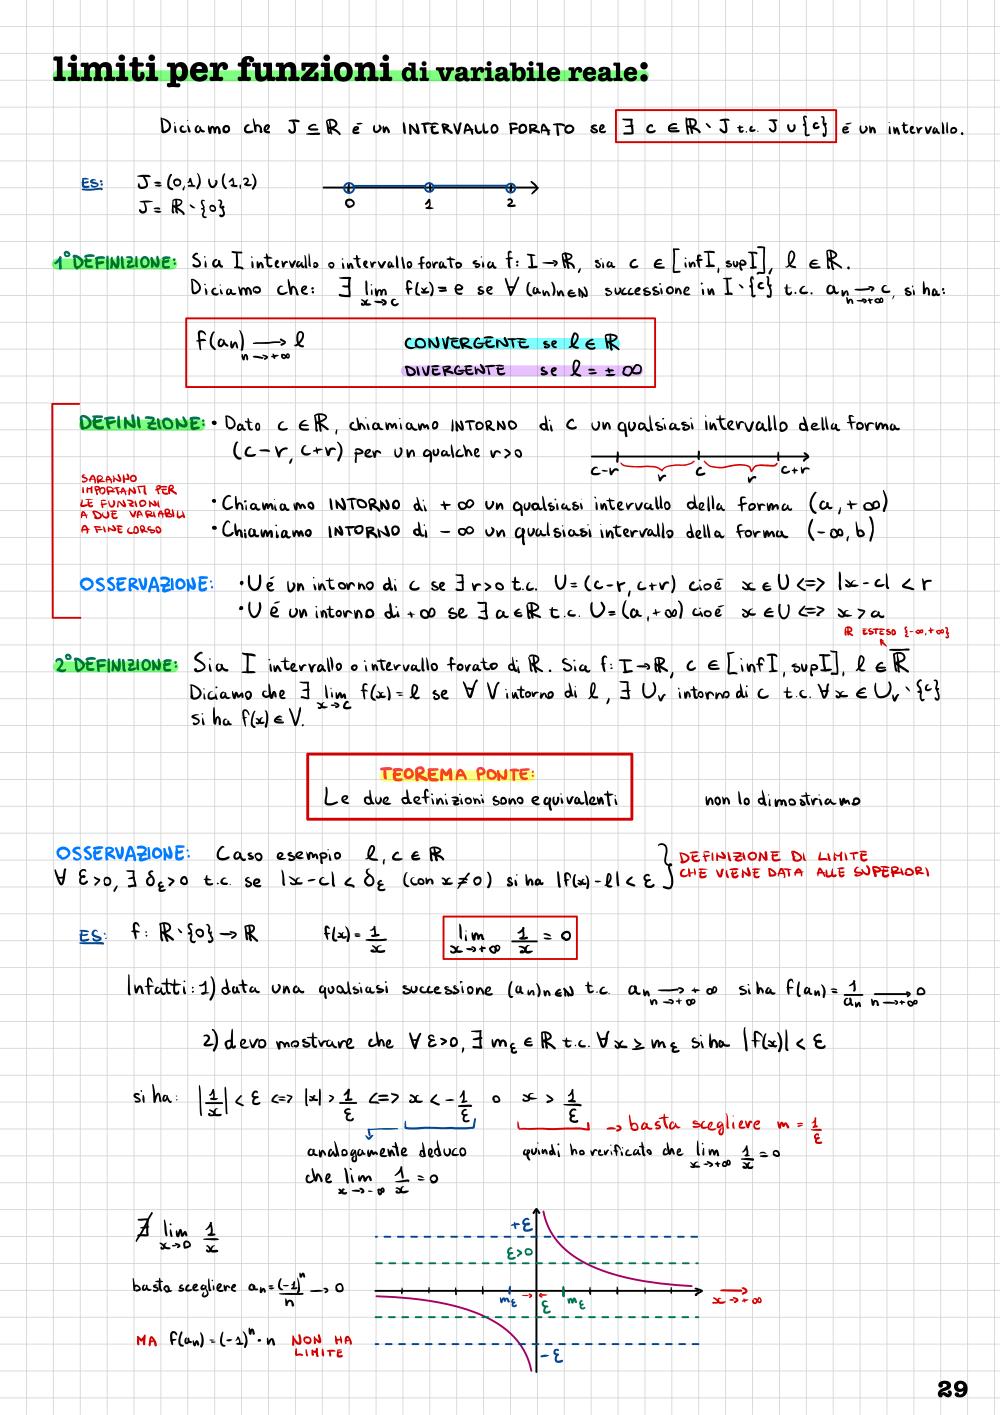 limiti per funzioni di variabile reale:
Diciamo che J ⊆ ℝ é un INTERVALLO FORATO se ∃ c ∈ ℝ∖J t.c. J ∪ {c} é un intervallo.
ES: J = (0,1) ∪ (1,2)
J = ℝ∖{0}
0 1 2
1° DEFINIZIONE: Sia I intervallo o intervallo forato sia f: I → ℝ, sia c ∈ [inf I, sup I], l ∈ ℝ.
Diciamo che: ∃ lim x→c f(x) = e se ∀ (an)n∈ℕ successione in I∖{c} t.c. an → c n→+∞, si ha:
f(an) → l n→+∞ CONVERGENTE se l ∈ ℝ
DIVERGENTE se l = ±∞
DEFINIZIONE: • Dato c ∈ ℝ, chiamiamo INTORNO di c un qualsiasi intervallo della forma
(c-r, c+r) per un qualche r>0
c-r r c r c+r
SARANNO
IMPORTANTI PER
LE FUNZIONI
A DUE VARIABILI
A FINE CORSO
• Chiamiamo INTORNO di +∞ un qualsiasi intervallo della forma (a, +∞)
• Chiamiamo INTORNO di -∞ un qualsiasi intervallo della forma (-∞, b)
OSSERVAZIONE: • U é un intorno di c se ∃ r>0 t.c. U = (c-r, c+r) cioé x ∈ U <=> |x-c| < r
• U é un intorno di +∞ se ∃ a ∈ ℝ t.c. U = (a, +∞) cioé x ∈ U <=> x > a
ℝ ESTESO {-∞,+∞}
2° DEFINIZIONE: Sia I intervallo o intervallo forato di ℝ. Sia f: I → ℝ, c ∈ [inf I, sup I], l ∈ ℝ̅
Diciamo che ∃ lim x→c f(x) = l se ∀ V intorno di l, ∃ Uv intorno di c t.c. ∀ x ∈ Uv∖{c}
si ha f(x) ∈ V.
TEOREMA PONTE:
Le due definizioni sono equivalenti non lo dimostriamo
OSSERVAZIONE: Caso esempio l, c ∈ ℝ
∀ ε>0, ∃ δε>0 t.c. se |x-c| < δε (con x≠0) si ha |f(x)-l| < ε
DEFINIZIONE DI LIMITE
CHE VIENE DATA ALLE SUPERIORI
ES: f: ℝ∖{0} → ℝ f(x) = 1/x lim x→+∞ 1/x = 0
Infatti: 1) data una qualsiasi successione (an)n∈ℕ t.c. an → +∞ n→+∞ si ha f(an) = 1/an → 0 n→+∞
2) devo mostrare che ∀ ε>0, ∃ mε ∈ ℝ t.c. ∀ x ≥ mε si ha |f(x)| < ε
si ha: |1/x| < ε <=> |x| > 1/ε <=> x < -1/ε o x > 1/ε
→ basta scegliere m = 1/ε
analogamente deduco
che lim x→-∞ 1/x = 0
quindi ho verificato che lim x→+∞ 1/x = 0
∄ lim x→0 1/x
basta scegliere an = (-1)^n/n → 0
MA f(an) = (-1)^n · n NON HA
LIMITE
+ε
ε>0
mε → ← ε mε
x→+∞
-ε
29